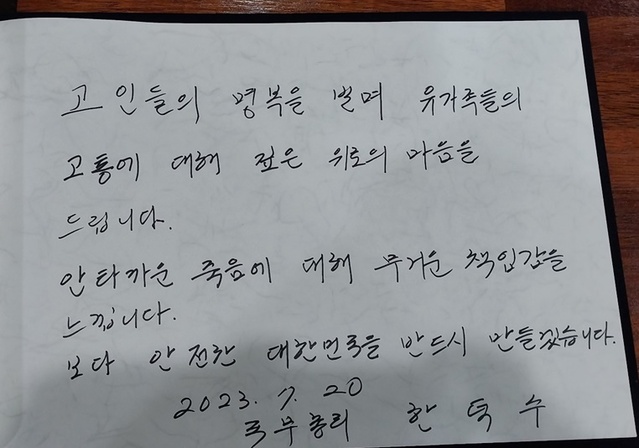 고인들의 명복을 빌며 유가족들의
고통에 대해 깊은 위로의 마음을
드립니다.
안타까운 죽음에 대해 무거운 책임감을
느낍니다.
보다 안전한 대한민국을 반드시 만들겠습니다.
2023. 7. 20
국무총리 한덕수